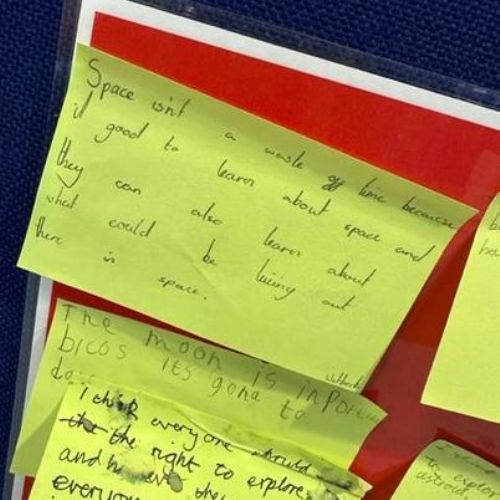 Space isn't a waste off time because
it good to learn about space and
they can also learn about
what could be living out
there in space.
The moon is inportant
bicos its gona to
I think everyone should
the the right to explore
and
everyone